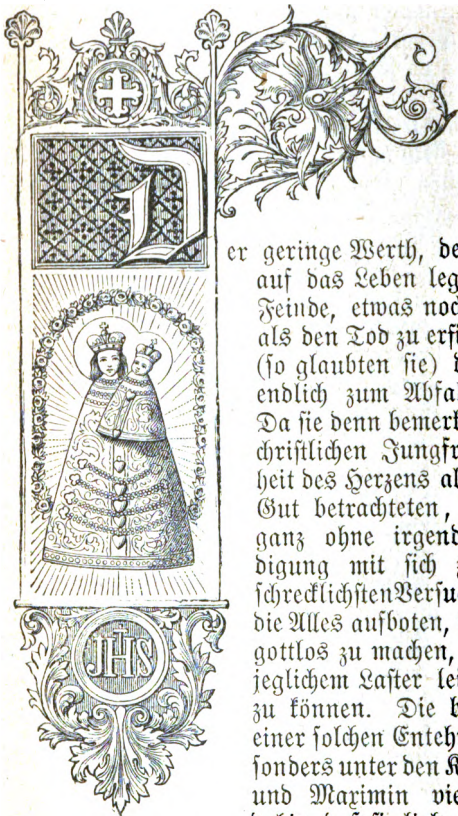 Der geringe Werth, de
auf das Leben leg
Feinde, etwas noc
als den Tod zu erfi
(so glaubten sie) d
endlich zum Abfa
Da sie denn bemerk
christlichen Jungfr
heit des Herzens al
Gut betrachteten,
ganz ohne irgend
digung mit sich z
schrecklichsten Versu
die Alles aufboten,
gottlos zu machen,
jeglichem Laster lei
zu können. Die b
einer solchen Enteh
sonders unter den K
und Maximin vie
JHS